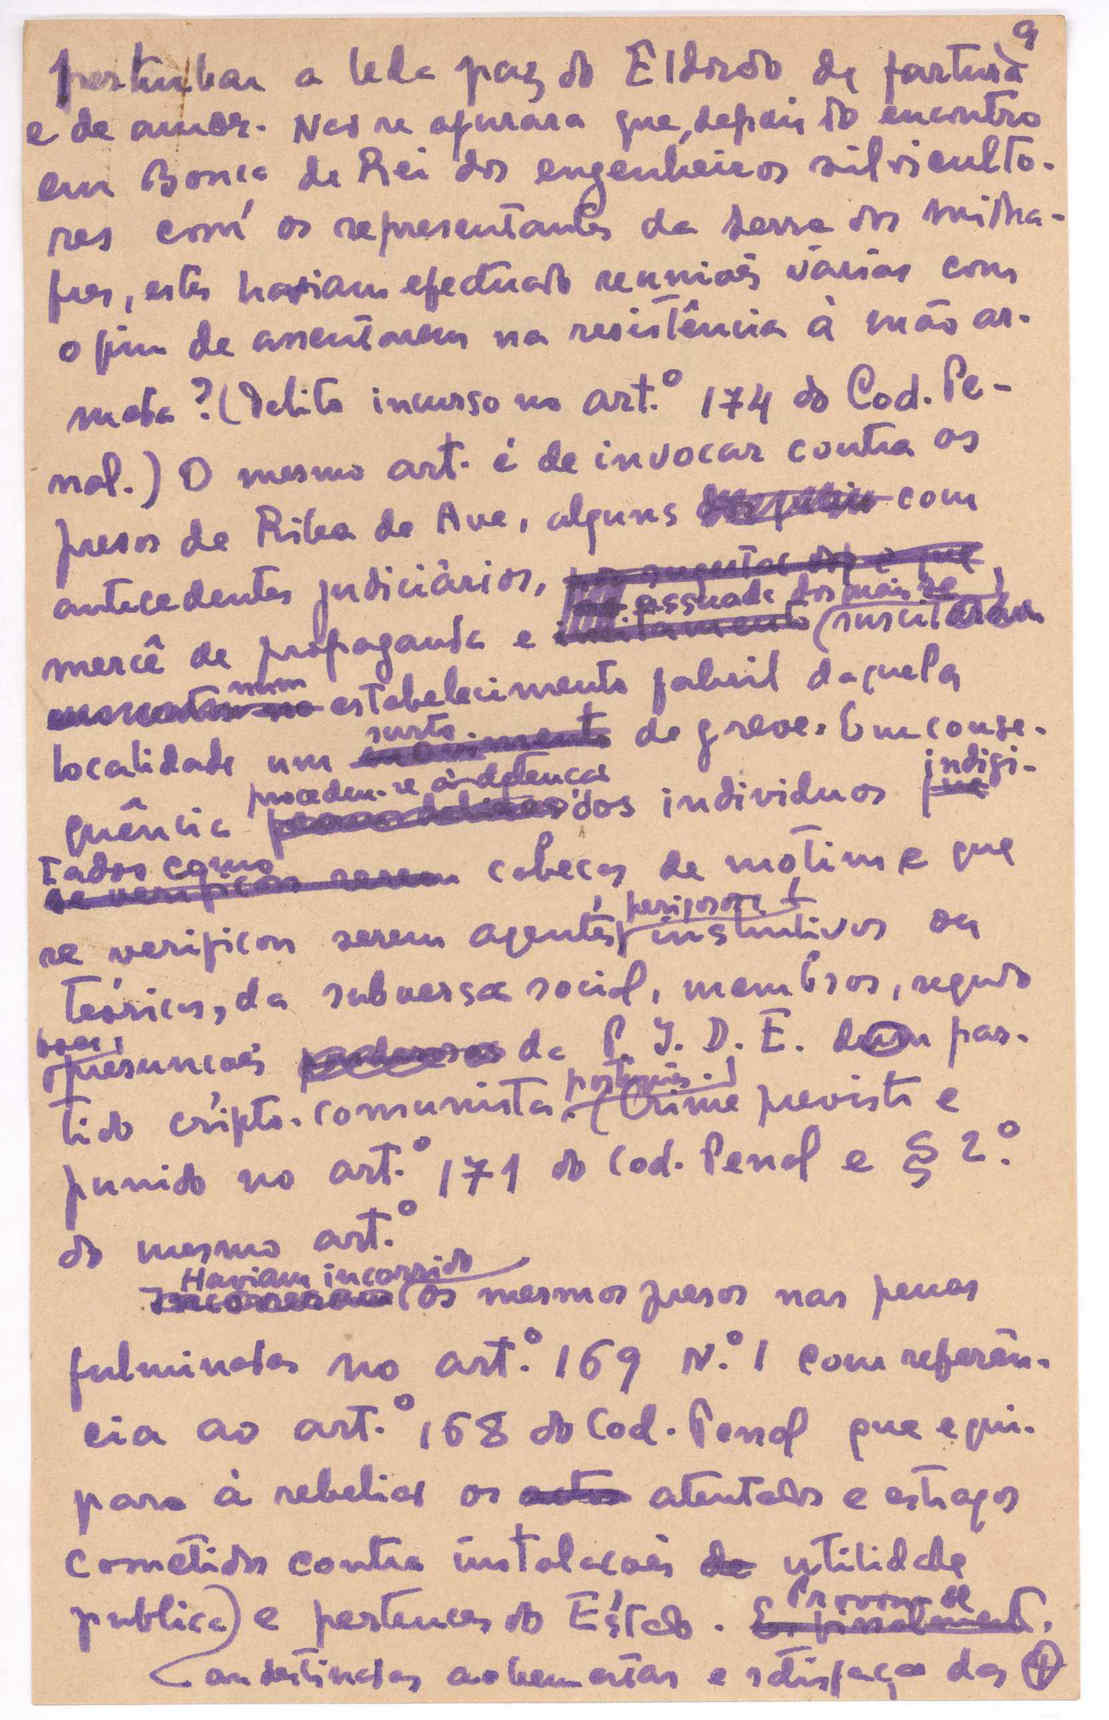 9
perturbar a leda paz do Eldorado da fartura
e de amor. Nos se apurara que, depois do encontro
em Bouça de Rei dos engenheiros silviculto-
res com os representantes da serra dos Milha-
fres, estes haviam efectuado reuniões várias com
o fim de assentarem na resistência à mão ar-
mada? (Delito incurso no art.º 174 do Cod. Pe-
nal.) O mesmo art. é de invocar contra os
presos de Riba de Ave, alguns com
antecedentes judiciários,
assuada dos mais se
mercê de propaganda e incitamento suscitaram
num estabelecimento fabril daquela
surto
localidade um movimento de greve. Em conse-
procedeu-se à detenção indigi-
quência dos individuos que
tados como
se verificou serem cabeças de motim e que
perigosos
se verificou serem agentes, instintivos ou
teóricos, da subversão social, membros, segundo
boas
presunções poderosas da P. I. D. E. dum par-
português.
tido cripto-comunista. (Crime previsto e
punido no art.º 171 do Cod. Penal e § 2.º
do mesmo art.º
Haviam incorrido
Incorreram os mesmos presos nas penas
fulminadas no art.º 169 N.º 1 com referên-
cia ao art.º 168 do Cod. Penal que equi-
para à rebelião os actos atentados e estragos
cometidos contra instalações de utilidade
Provou-se
publica) e pertences do Estado. E finalmente,
ou destinadas ao bem estar e satisfação das